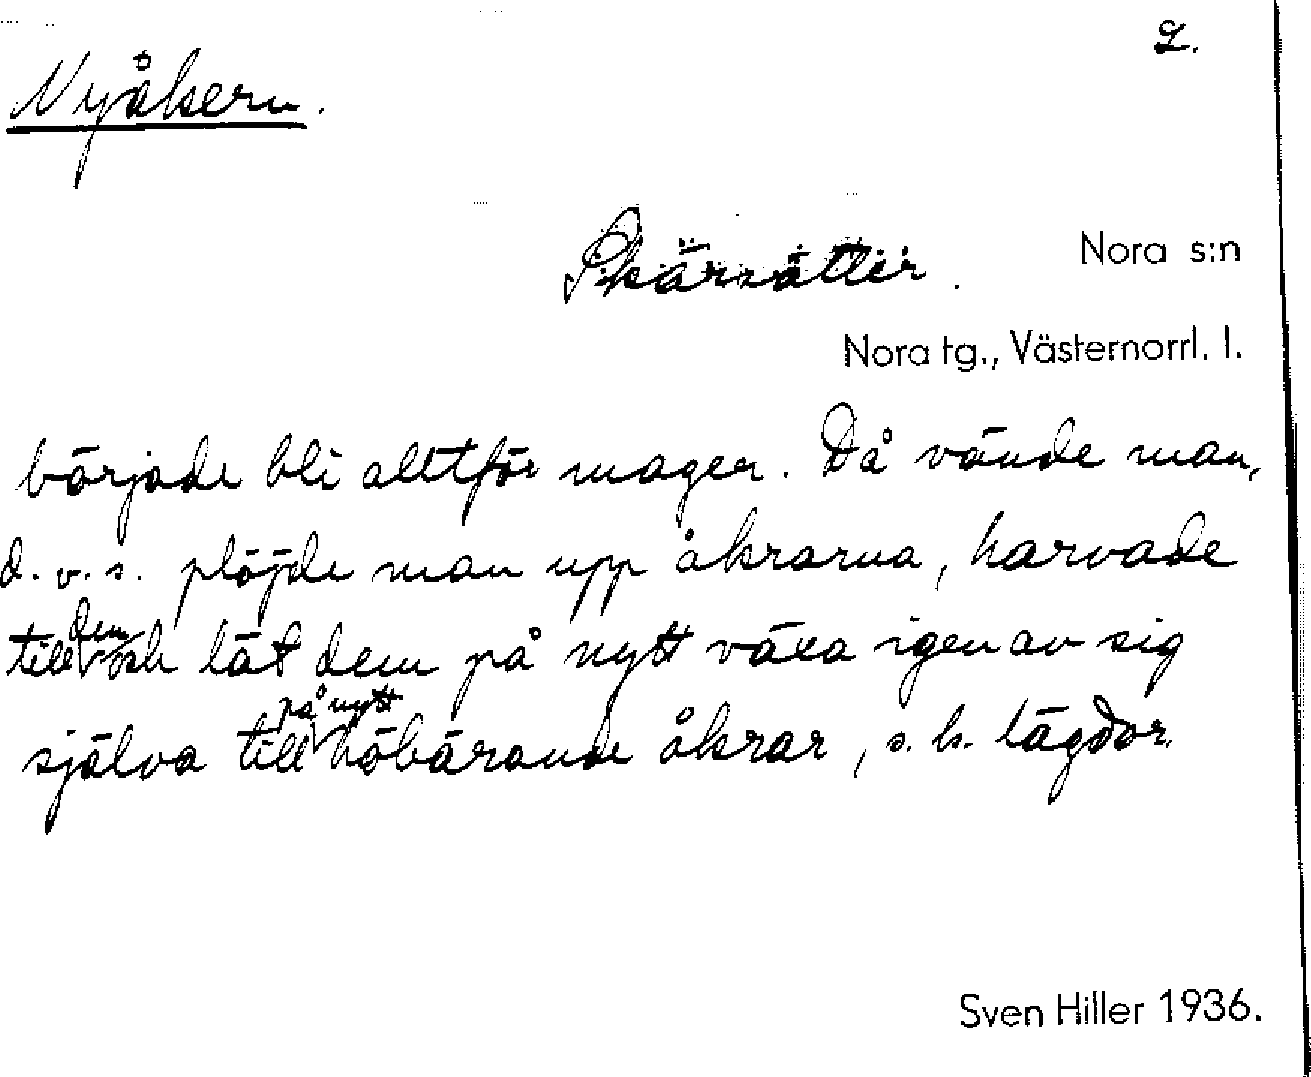 2.
Nyåkern.
Skärsätter.
Nora s:n
Nora tg., Västernorrl. l.
började bli alltför mager. Då vände man,
d.v.s. plöjde man upp åkrarna, harvade
till dem och lät dem på nytt växa igen av sig
själva till på nytt höbärande åkrar, s.k. lägdor.
Sven Hiller 1936.